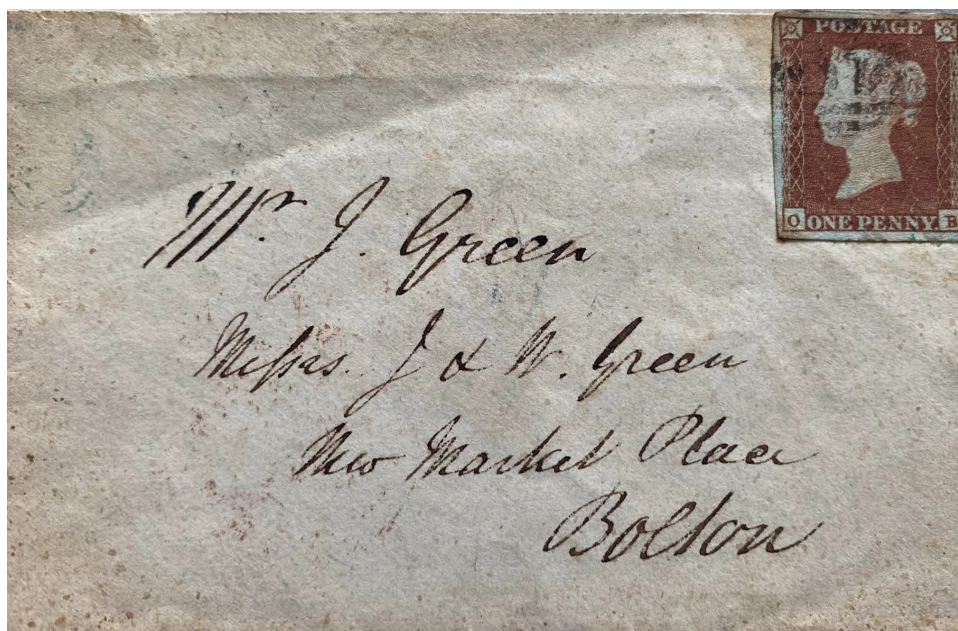 POSTAGE
O ONE PENNY. B
Mr. J. Green
Messrs. J & W. Green
New Market Place
Bolton